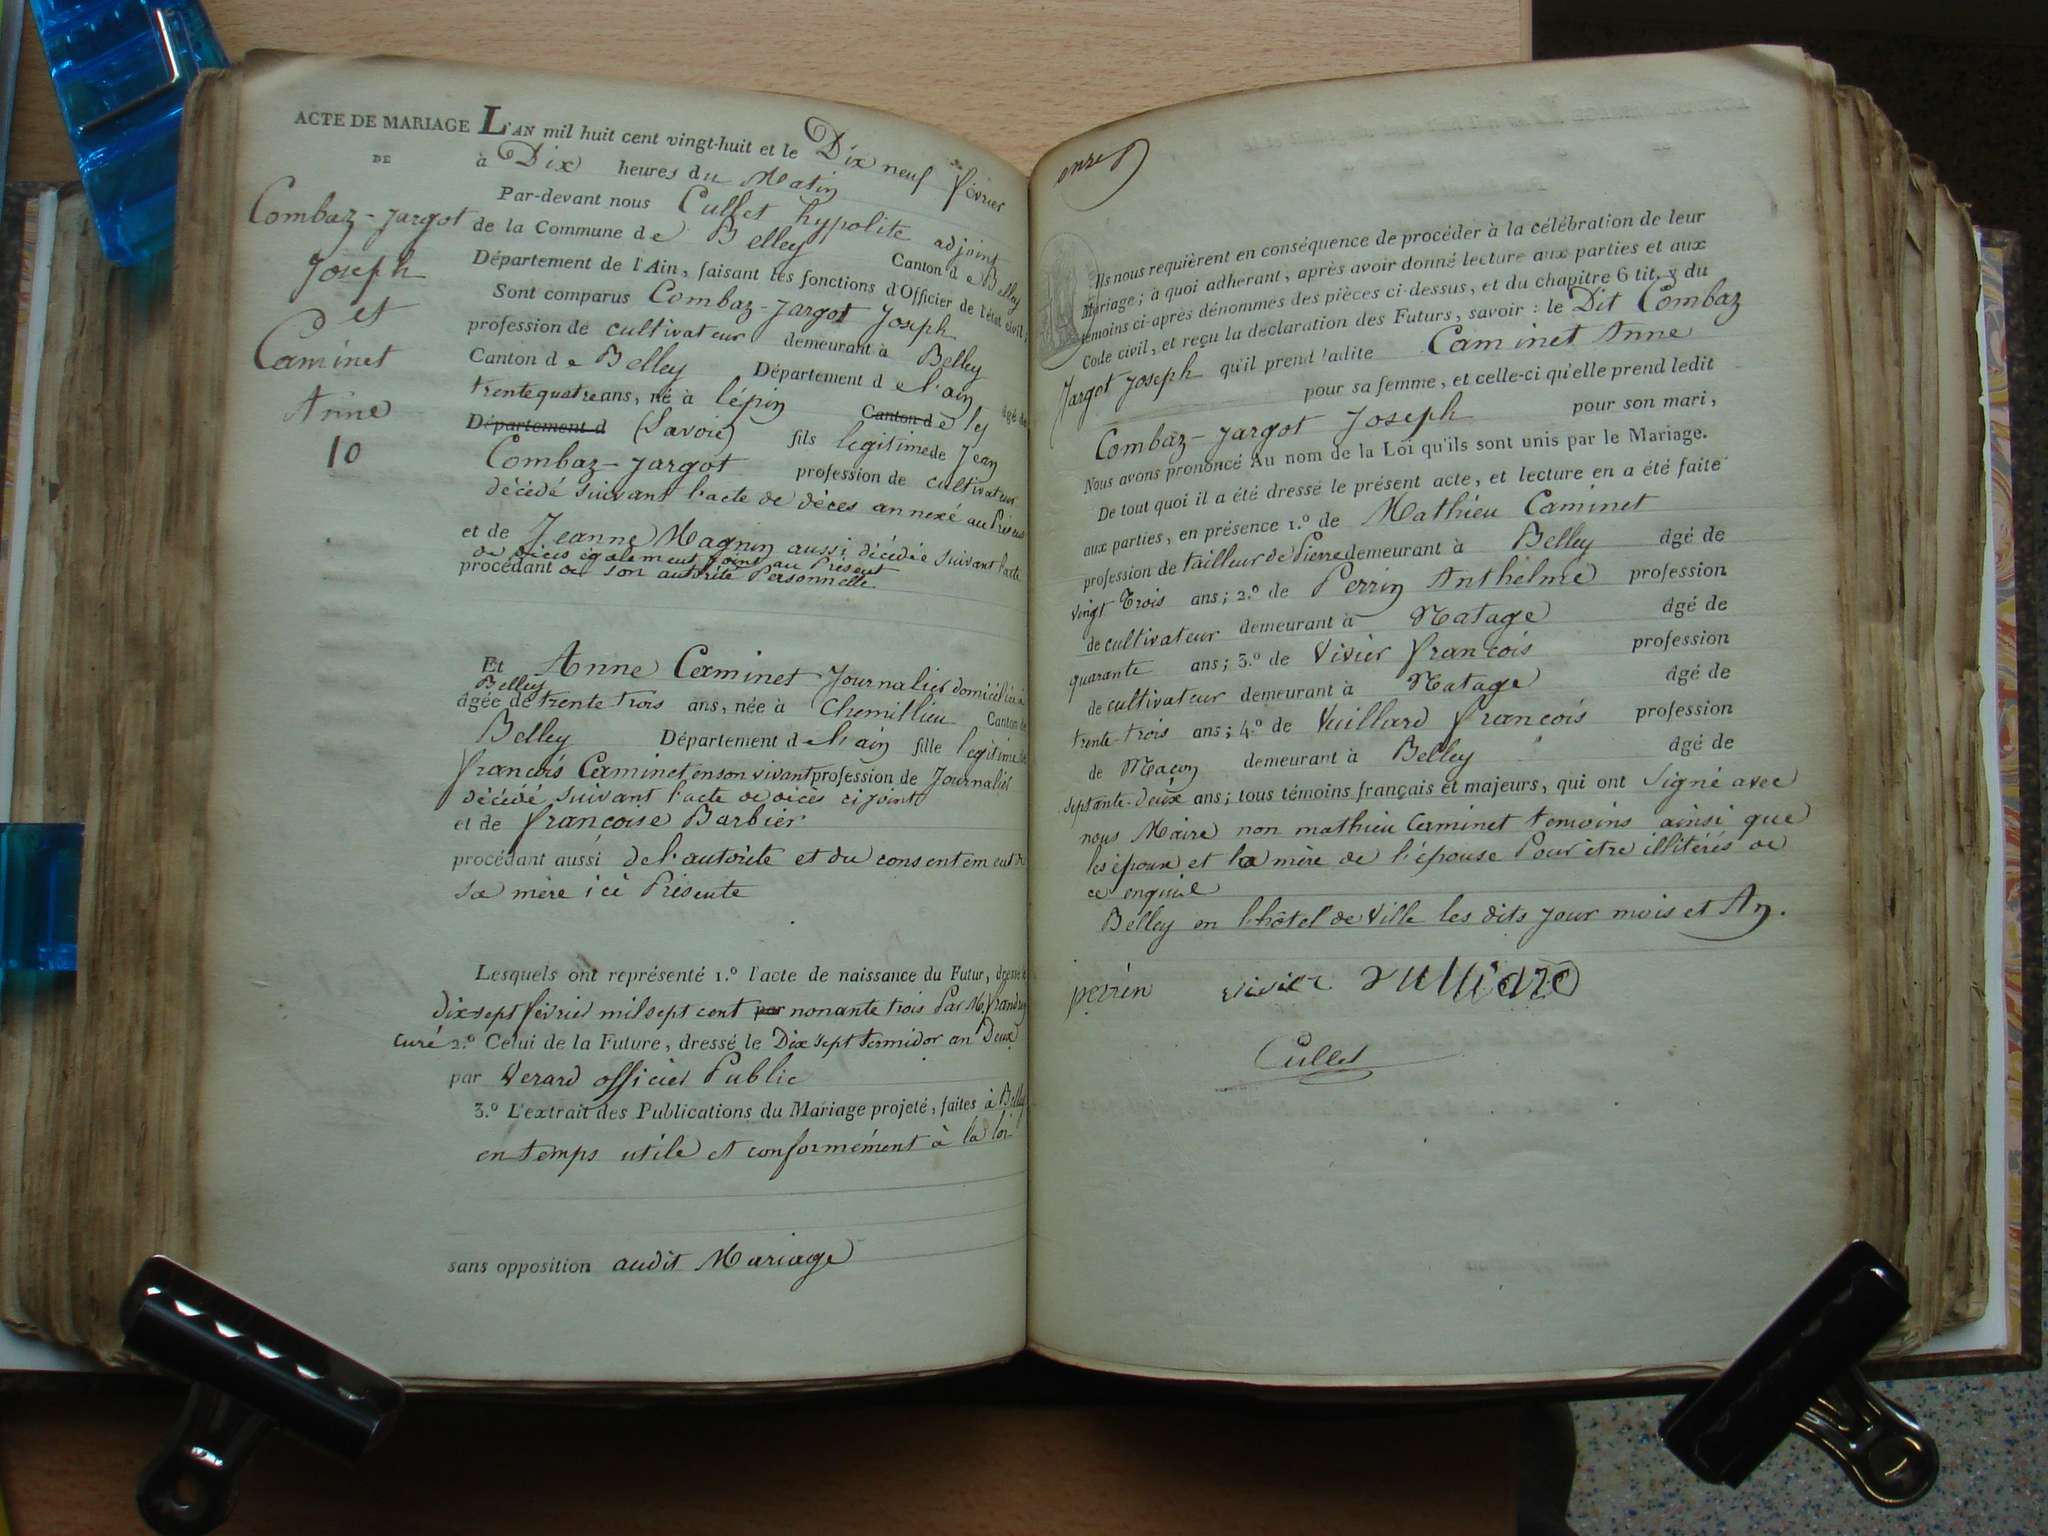 ACTE DE MARIAGE
DE
Combaz-Jargot
Joseph
et
Caminet
Anne
10
L'AN mil huit cent vingt-huit et le Dix neuf février
à Dix heures du Matin
Par-devant nous Cullet hypolite adjoint
de la Commune de Belley Canton de Belley
Département de l'Ain, faisant les fonctions d'Officier de l'état civil,
Sont comparus Combaz-Jargot Joseph
profession de cultivateur demeurant à Belley
Canton de Belley Département de l'ain âgé de
trente quatre ans, né à lépin Canton de
Département d (Savoie) fils legitime de Jean
Combaz-Jargot profession de cultivateur
décédé suivant l'acte de déces annexé au Présent
et de Jeanne Magnin aussi décédée suivant l'acte
de déces également joint au Présent
procédant de son autorité Personnelle
Et Anne Caminet Journalier domiciliée à
Belley
âgée de trente trois ans, née à Chemillieu Canton de
Belley Département de l'ain fille legitime de
francois Caminet en son vivant profession de Journalier
décédé suivant l'acte de décès ci joint
et de françoise Barbier
procédant aussi de l'autorité et du consentement de
sa mère ici Présente
Lesquels ont représenté 1.º l'acte de naissance du Futur, dressé le
dix-sept février mil sept cent par nonante trois Par M.
curé 2.º Celui de la Future, dressé le Dix sept termidor an Deux
par Verard officier Public
3.º L'extrait des Publications du Mariage projeté, faites à Belley
en temps utile et conformément à la loi
sans opposition audit Mariage
onze
Ils nous requièrent en conséquence de procéder à la célébration de leur
Mariage; à quoi adhérant, après avoir donné lecture aux parties et aux
témoins ci-après dénommés des pièces ci-dessus, et du chapitre 6 tit. 5 du
Code civil, et reçu la déclaration des Futurs, savoir : le Dit Combaz
Jargot Joseph qu'il prend ladite Caminet Anne
pour sa femme, et celle-ci qu'elle prend ledit
Combaz-Jargot Joseph pour son mari,
Nous avons prononcé Au nom de la Loi qu'ils sont unis par le Mariage.
De tout quoi il a été dressé le présent acte, et lecture en a été faite
aux parties, en présence 1.º de Mathieu Caminet
profession de tailleur de Pierre demeurant à Belley âgé de
vingt Trois ans; 2.º de Perrin Anthelme profession
de cultivateur demeurant à Natage âgé de
quarante ans; 3.º de Vivier françois profession
de cultivateur demeurant à Natage âgé de
trente-trois ans; 4.º de Vuillard françois profession
de Maçon demeurant à Belley âgé de
septante-deux ans; tous témoins français et majeurs, qui ont signé avec
nous Maire non mathieu Caminet temoins ainsi que
les époux et la mère de l'épouse Pour etre illitérés de
ce enquie
Belley en l'hôtel de Ville les dits jour mois et An.
perrin vivier vulliard
Cullet